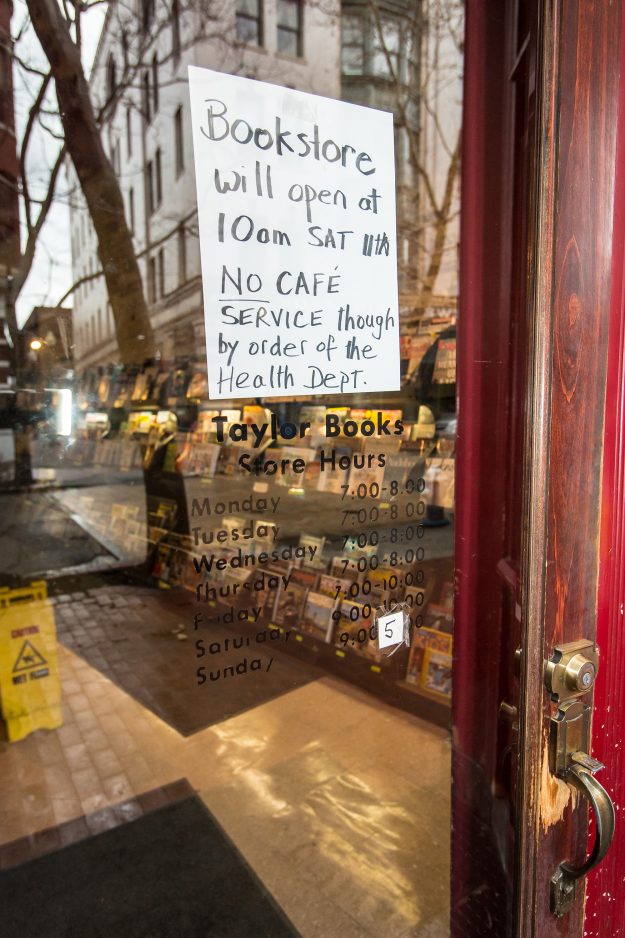 Bookstore
will open at
10am SAT 11th
NO CAFÉ
SERVICE though
by order of the
Health Dept.
Taylor Books
Store Hours
Monday 7:00-8:00
Tuesday 7:00-8:00
Wednesday 7:00-8:00
Thursday 7:00-8:00
Friday 7:00-10:00
Saturday 9:00-10:00
Sunday 9:00 5
CAUTION
WET